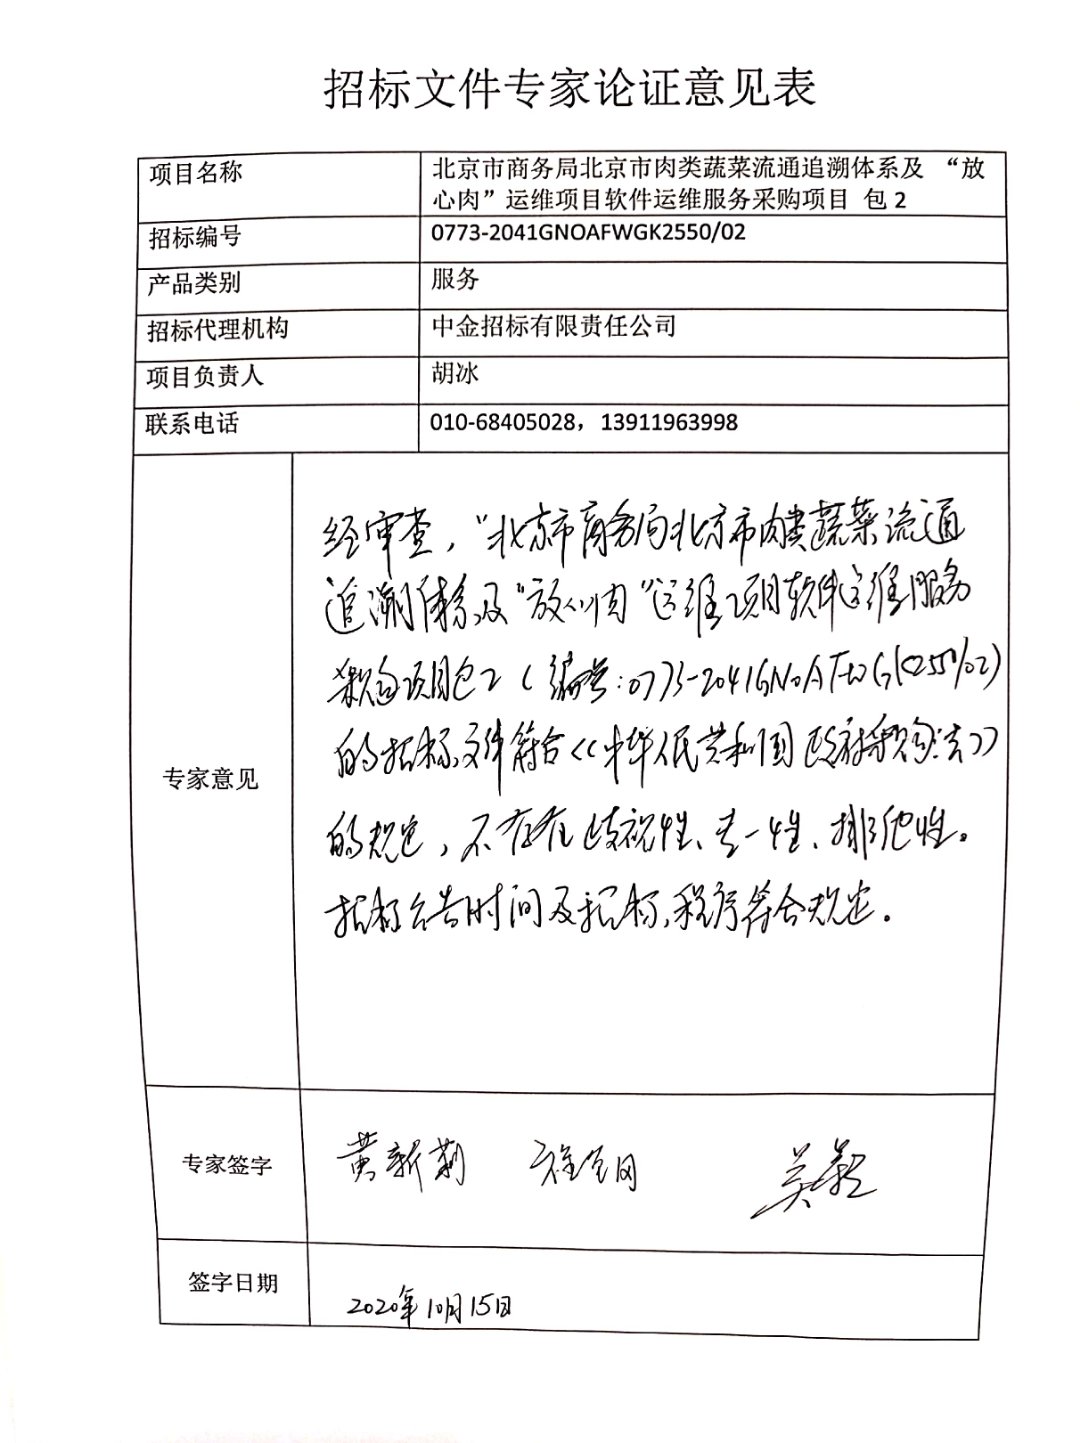 招标文件专家论证意见表
项目名称
北京市商务局北京市肉类蔬菜流通追溯体系及 “放
心肉”运维项目软件运维服务采购项目 包 2
招标编号
0773-2041GNOAFWGK2550/02
产品类别
服务
招标代理机构
中金招标有限责任公司
项目负责人
胡冰
联系电话
010-68405028，13911963998
专家意见
经审查，“北京市商务局北京市肉类蔬菜流通
追溯体系及“放心肉”运维项目软件运维服务
采购项目包2（编号:0773-2041GNOAFWGK2550/02)
的招标文件符合《中华人民共和国政府采购法》
的规定，不存在歧视性、专一性、排他性。
招标公告时间及招标程序符合规定.
专家签字
黄新莉
签字日期
2020年10月15日